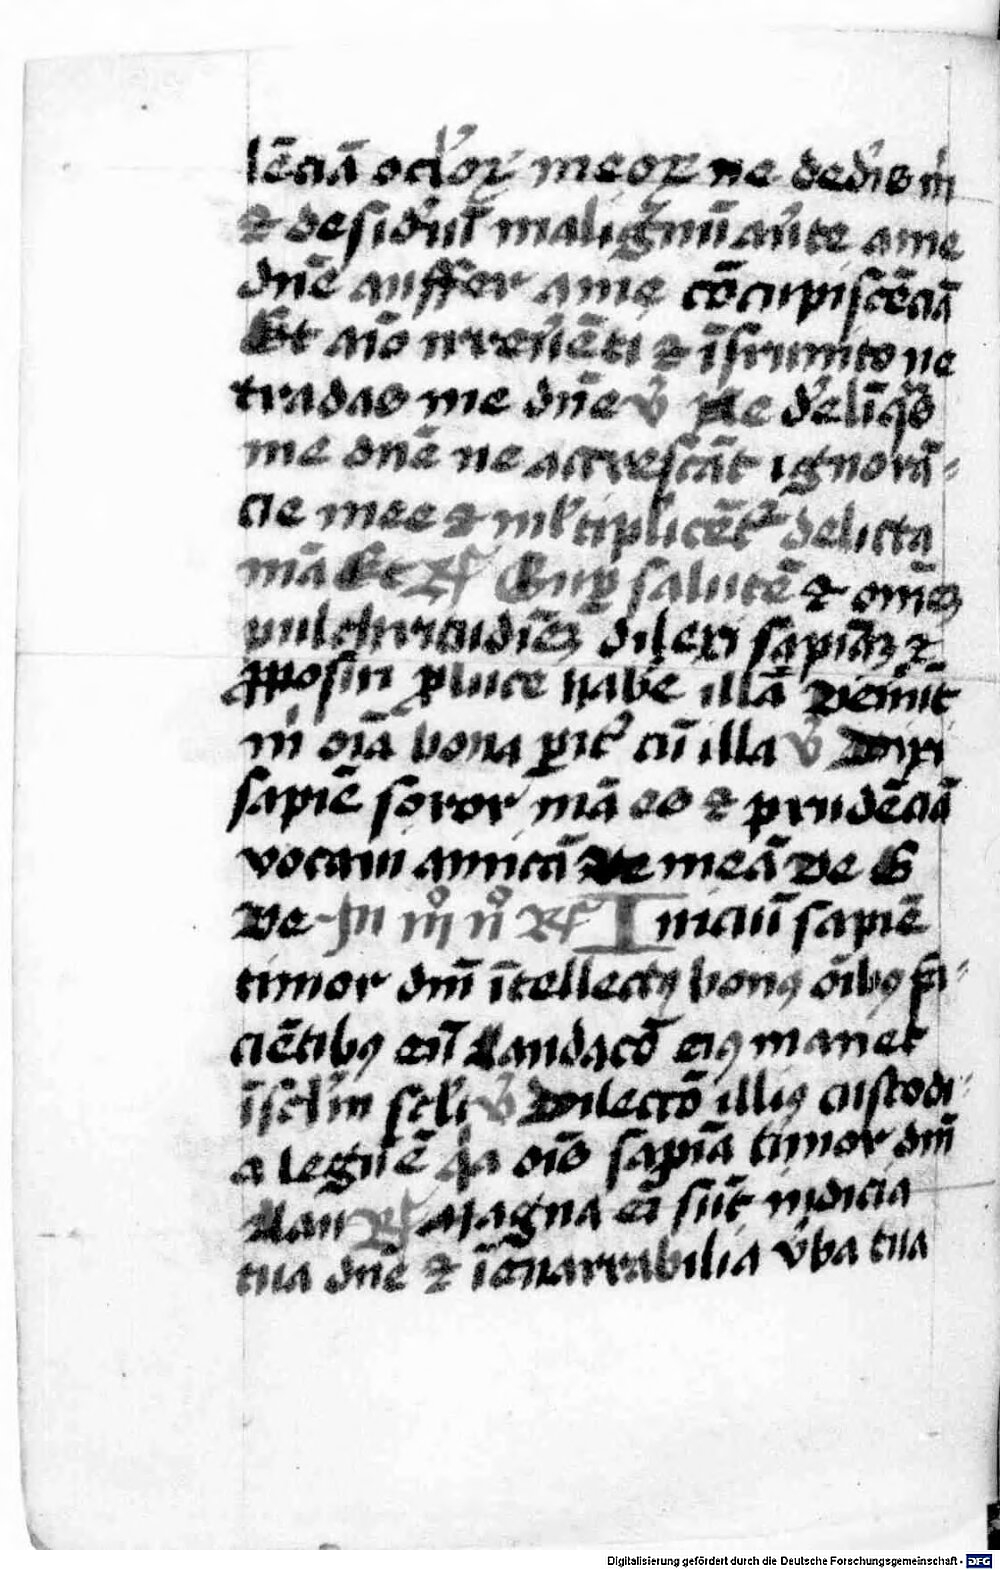 lēciā oclōꝝ meoꝝ ne dedis m̄
⁊ desid'iū malignū au'te a me
dn̄e auffer a me cōcupiscēciā
Et aīo irreuēti ⁊ īfrunito ne
tradas me dn̄e v̄ Ne delīq̄s
me dn̄e ne accrescāt ignorā-
cie mee ⁊ ml'tiplicēt' delicta
mā Et R̄ Sup̄ salutē ⁊ om̄eꝫ
pulchritudīeꝫ dilexi sapiāꝫ ⁊
ꝓposui ꝓ luce habe' illā Veniūt
m̄ oīa bona ꝑit' cū illa v̄ Dixi
sapiē soror mā es ⁊ prudēciā
vocaui amicā meā Ve S
Ve In iij̊ n̊ R̄ Iniciū sapiē
timor dn̄i ītellectꝰ bonꝰ oībꝰ fa-
ciētibꝰ eū Laudacō eiꝰ manet
ī scl'm scl'i v̄ Dilectō illiꝰ custodi-
a legū ē q̄a oīs sapiā timor dn̄i
Lau R̄ Magna ei sūt iudicia
tua dn̄e ⁊ īenarrabilia v̄ba tua
Digitalisierung gefördert durch die Deutsche Forschungsgemeinschaft - DFG